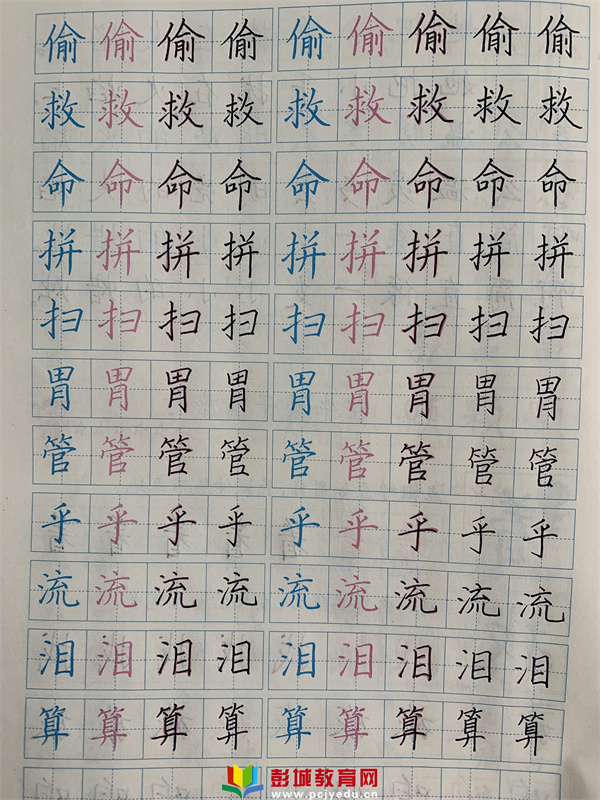 偷偷偷偷偷偷偷偷偷
救救救救救救救救救
命命命命命命命命命
拼拼拼拼拼拼拼拼拼
扫扫扫扫扫扫扫扫扫
胃胃胃胃胃胃胃胃胃
管管管管管管管管管
乎乎乎乎乎乎乎乎乎
流流流流流流流流流
泪泪泪泪泪泪泪泪泪
算算算算算算算算算
彭城教育网
www.pcjyedu.cn